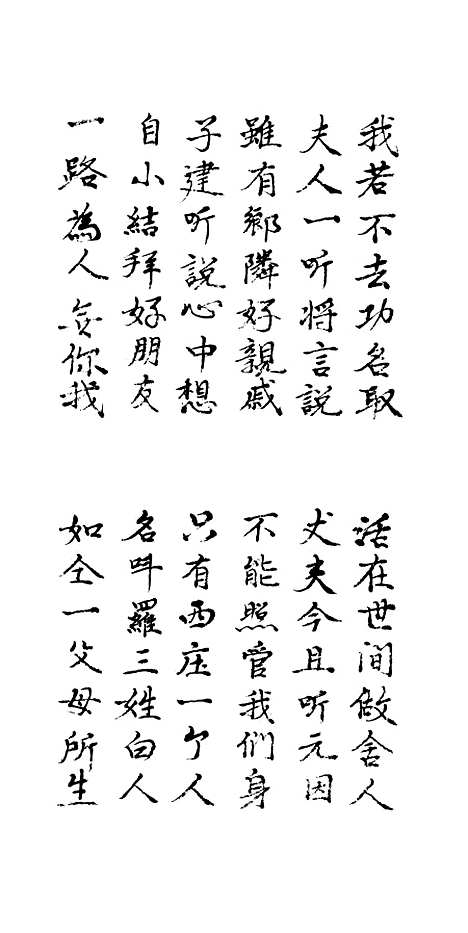 我若不去功名取
活在世间做舍人
夫人一听将言説
丈夫今且听元因
雖有鄉隣好親戚
不能照管我们身
子建听説心中想
只有西庄一个人
自小結拜好朋友
名叫羅三姓白人
一路為人你我
如仝一父母所生